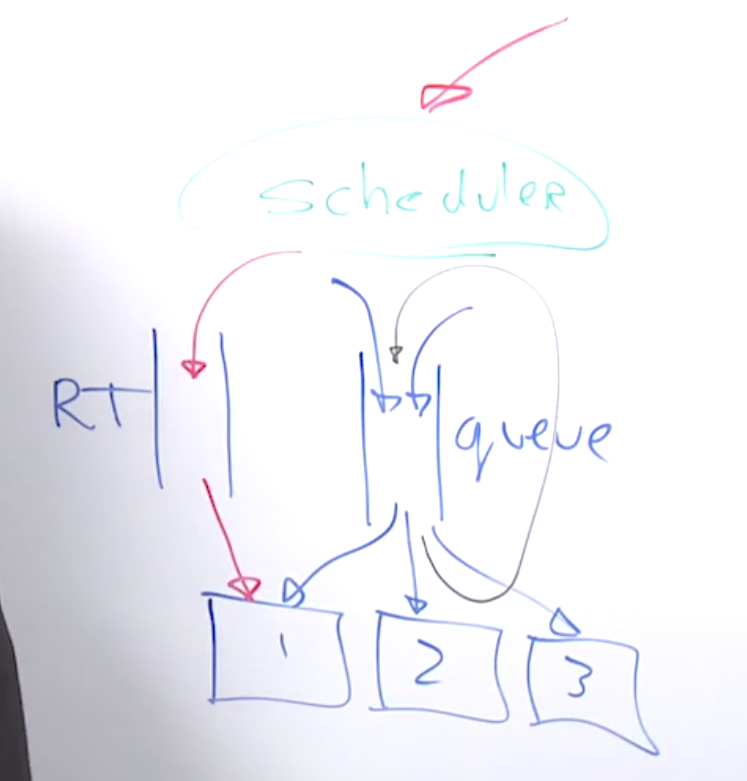 Scheduler
RT
queue
1 2 3